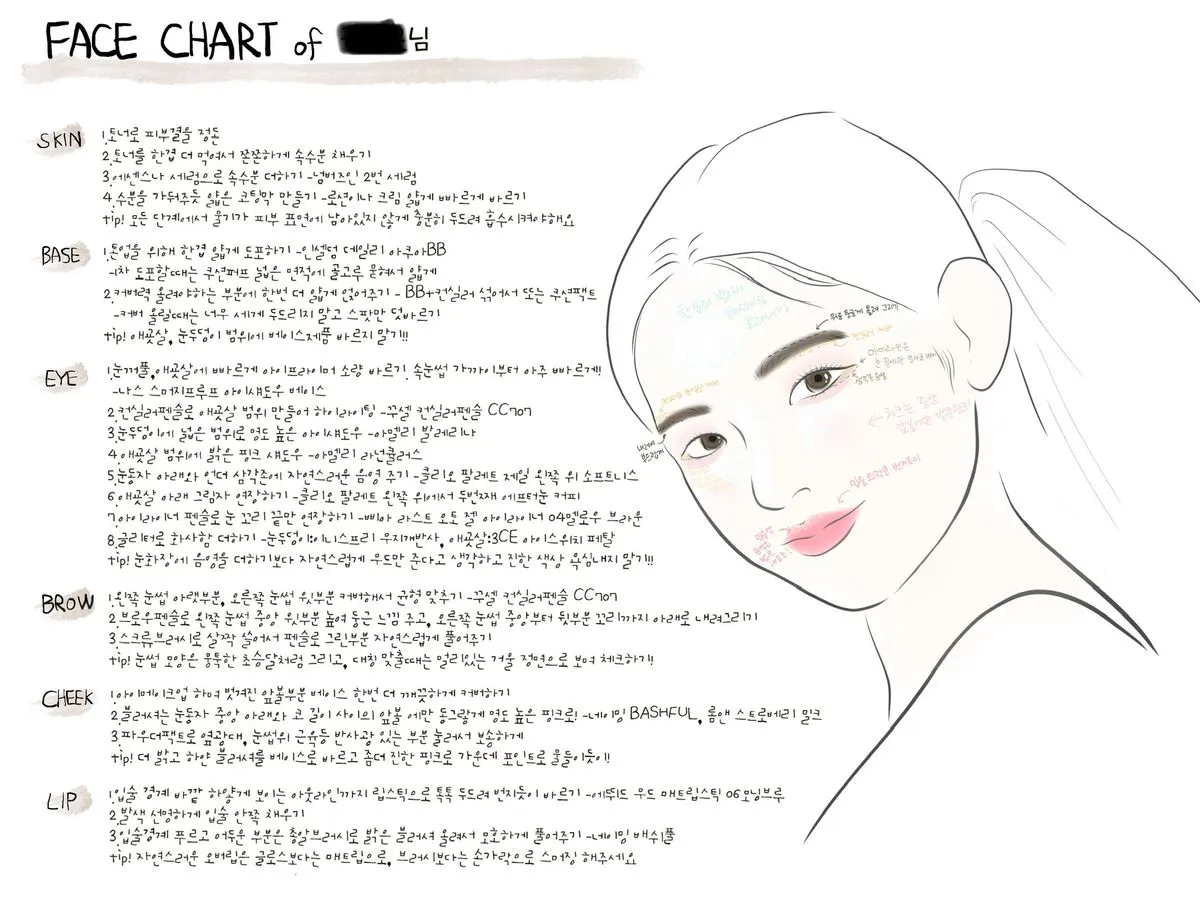 FACE CHART of 님
SKIN
1.토너로 피부결을 정돈
2.토너를 한겹 더 먹여서 쫀쫀하게 속수분 채우기
3.에센스나 세럼으로 속수분 더하기 -넘버즈인 2번 세럼
4.수분을 가둬주듯 얇은 코팅막 만들기 -로션이나 크림 얇게 빠르게 바르기
tip! 모든 단계에서 물기가 피부 표면에 남아있지 않게 충분히 두드려 흡수시켜야해요
BASE
1.톤업을 위해 한겹 얇게 도포하기 -인셀덤 데일리 아쿠아BB
-1차 도포할때는 쿠션퍼프 넓은 면적에 골고루 묻혀서 얇게
2.커버력 올려야하는 부분에 한번 더 얇게 얹어주기 - BB+컨실러 섞어서 또는 쿠션팩트
-커버 올릴때는 너무 세게 두드리지 말고 스팟만 덧바르기
tip! 애굣살, 눈두덩이 범위에 베이스제품 바르지 말기!!
EYE
1.눈꺼풀,애굣살에 빠르게 아이프라이머 소량 바르기. 속눈썹 가까이부터 아주 빠르게!!
-나스 스머지프루프 아이섀도우 베이스
2.컨실러펜슬로 애굣살 범위 만들어 하이라이팅 -꾸셀 컨실러펜슬 CC707
3.눈두덩이에 넓은 범위로 명도 높은 아이섀도우 -아멜리 발레리나
4.애굣살 범위에 밝은 핑크 섀도우 -아멜리 라넌큘러스
5.눈동자 아래와 언더 삼각존에 자연스러운 음영 주기 -클리오 팔레트 제일 왼쪽 위 소프트니스
6.애굣살 아래 그림자 연장하기 -클리오 팔레트 왼쪽 위에서 두번째 에프터눈 커피
7.아이라이너 펜슬로 눈 꼬리 끝만 연장하기 -삐아 라스트 오토 젤 아이라이너 04멜로우 브라운
8.글리터로 화사함 더하기 -눈두덩이:이니스프리 우지개반사, 애굣살:3CE 아이스위치 페탈
tip! 눈화장에 음영을 더하기보다 자연스럽게 무드만 준다고 생각하고 진한 색상 욕심내지 말기!!
BROW
1.왼쪽 눈썹 아랫부분, 오른쪽 눈썹 윗부분 커버해서 균형 맞추기 -꾸셀 컨실러펜슬 CC707
2.브로우펜슬로 왼쪽 눈썹 중앙 윗부분 높여 둥근 느낌 주고, 오른쪽 눈썹 중앙부터 뒷부분 꼬리까지 아래로 내려그리기
3.스크류브러시로 살짝 쓸어서 펜슬로 그린부분 자연스럽게 풀어주기
tip! 눈썹 모양은 뭉툭한 초승달처럼 그리고, 대칭 맞출때는 멀리있는 거울 정면으로 보며 체크하기!
CHEEK
1.아이메이크업 하며 벗겨진 앞볼부분 베이스 한번 더 깨끗하게 커버하기
2.블러셔는 눈동자 중앙 아래와 코 길이 사이의 앞볼 에만 동그랗게 명도 높은 핑크로! -네이밍 BASHFUL, 롬앤 스트로베리 밀크
3.파우더팩트로 옆광대, 눈썹위 근육등 반사광 있는 부분 눌러서 보송하게
tip! 더 밝고 하얀 블러셔를 베이스로 바르고 좀더 진한 핑크로 가운데 포인트로 물들이듯이!
LIP
1.입술 경계 바깥 하얗게 보이는 아웃라인까지 립스틱으로 톡톡 두드려 번지듯이 바르기 -에뛰드 무드 매트립스틱 06모닝브루
2.발색 선명하게 입술 안쪽 채우기
3.입술경계 푸르고 어두운 부분은 총알브러시로 밝은 블러셔 올려서 모호하게 풀어주기 -네이밍 배쉬풀
tip! 자연스러운 오버립은 글로스보다는 매트립으로, 브러시보다는 손가락으로 스머징 해주세요
위로 둥글게 올려 그리기
아이라인은
눈 끝에만
삼각존음영
내려서
부드럽게
치크는 중앙
입술외곽을 번지듯이